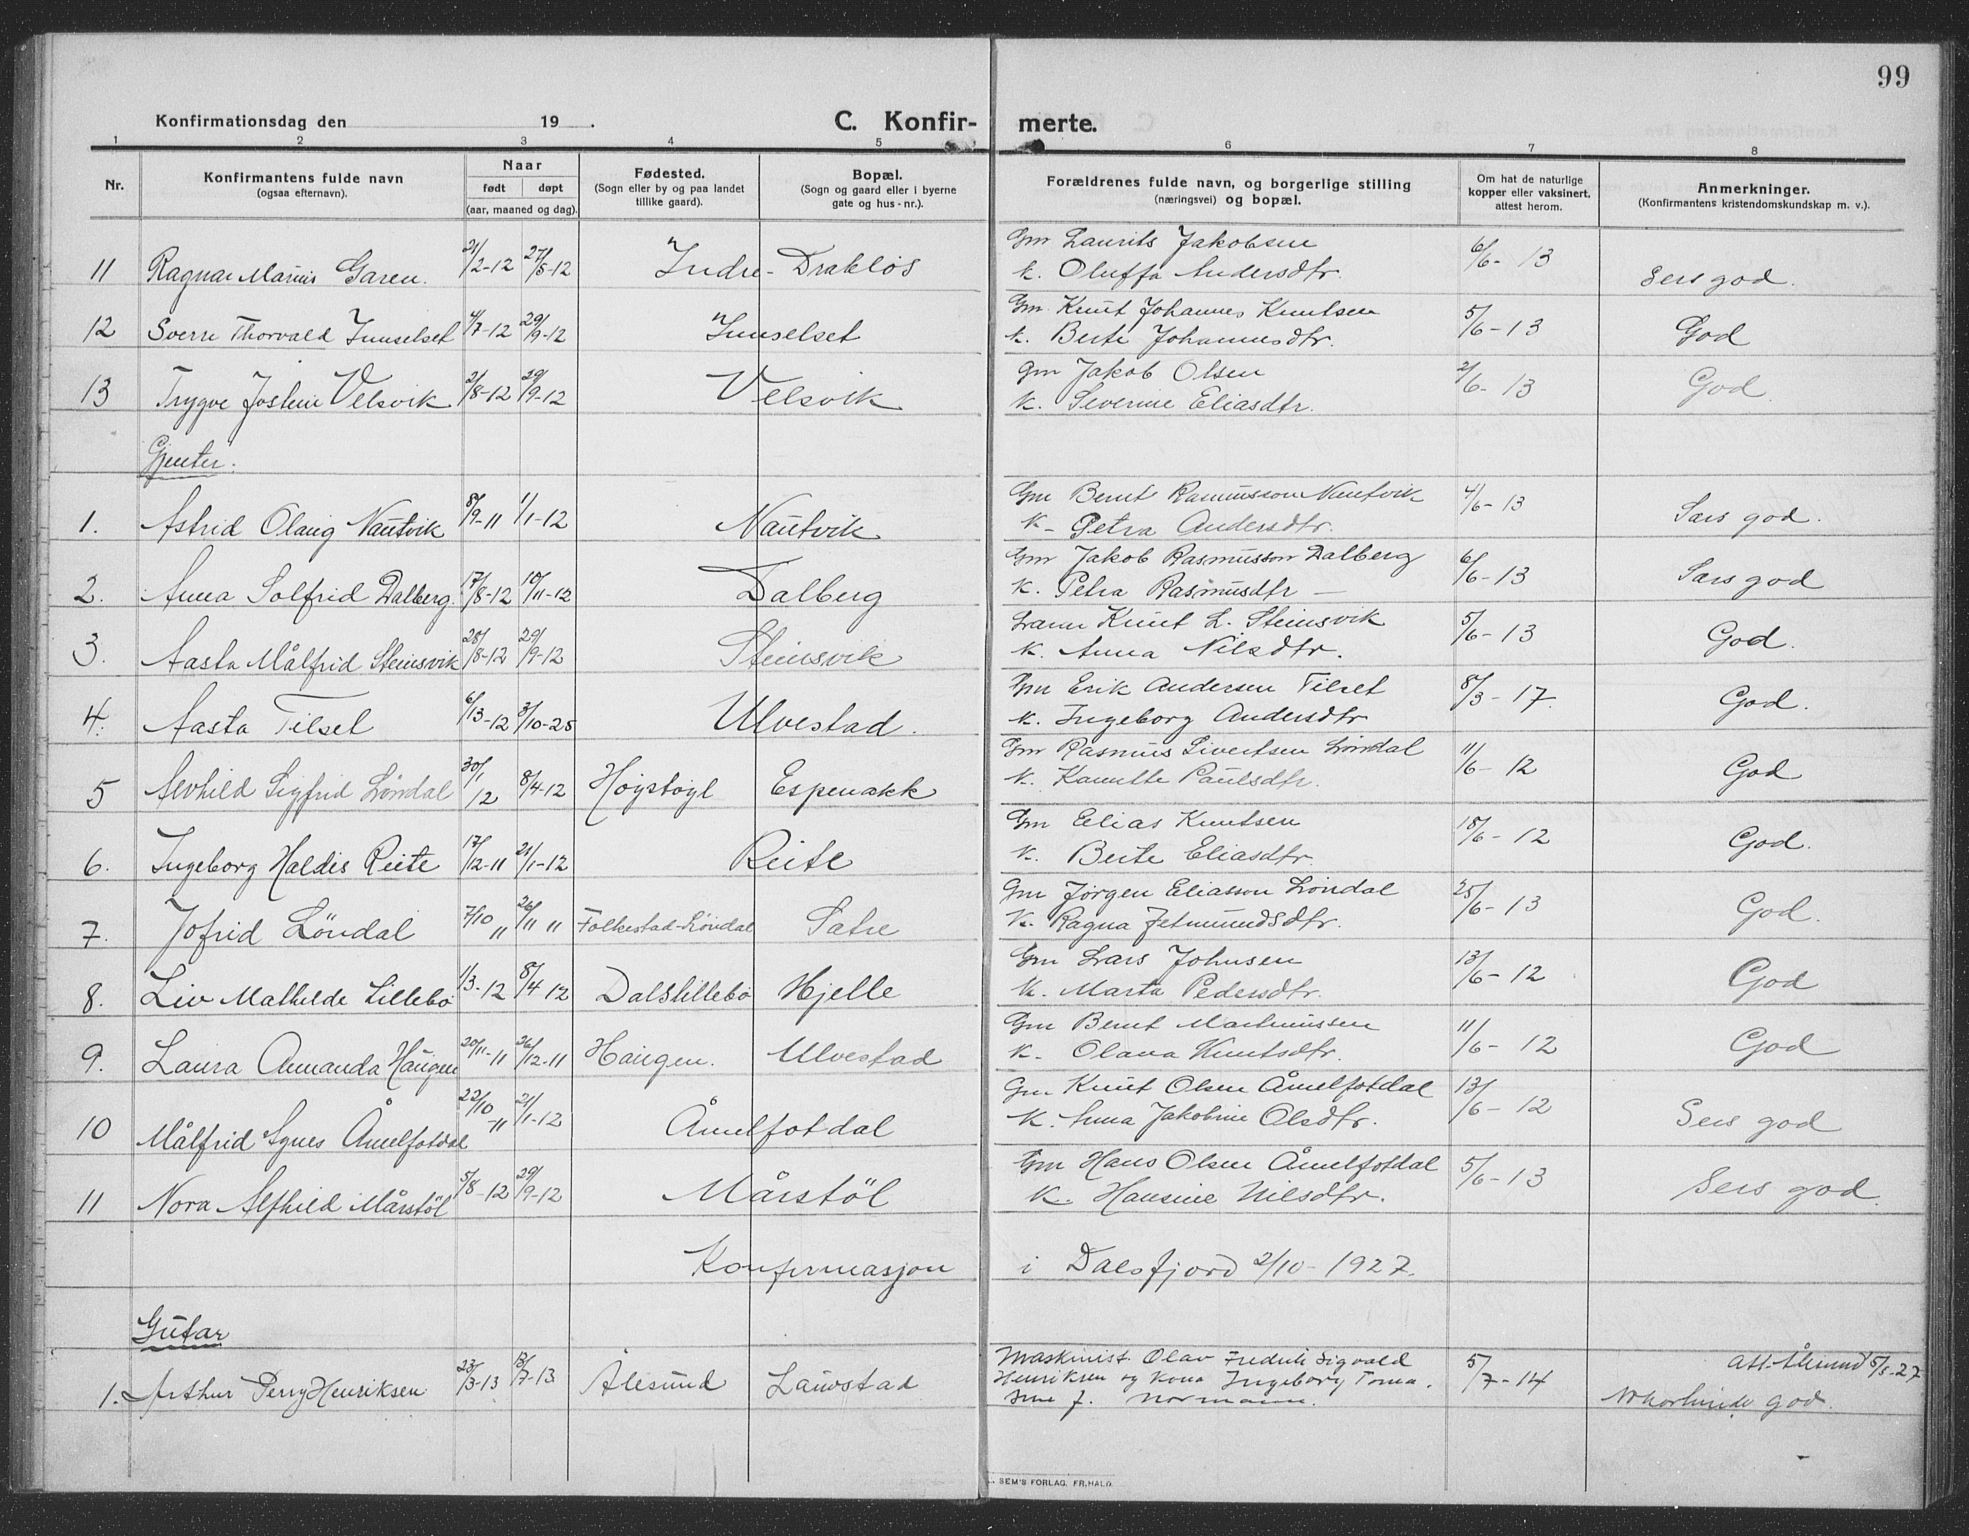 99
Konfirmationsdag den 19 . C. Konfir- merte.
1 2 3 4 5 6 7 8
Nr. Konfirmantens fulde navn (ogsaa efternavn). Naar født døpt (aar, maaned og dag). Fødested. (Sogn eller by og paa landet tillike gaard). Bopæl. (Sogn og gaard eller i byerne gate og hus-nr.). Forældrenes fulde navn, og borgerlige stilling (næringsvei) og bopæl. Om hat de naturlige kopper eller vaksinert, attest herom. Anmerkninger. (Konfirmantens kristendomskundskap m. v.).
11 Ragnar Marius Garen. 21/2-12 27/5-12 Indre-Drakløs Gm Laurits Jakobsen k. Oluffa Andersdtr. 6/6-13 Sers god.
12 Sverre Thorvald Innselset 4/7-12 29/9-12 Innselset Gm. Knut Johannes Knutsen k. Berte Johannesdtr. 5/6-13 God
13 Trygve Jostein Velsvik 2/8-12 29/9-12 Velsvik Gm Jakob Olsen k. Severine Eliasdtr. 2/6-13 God.
Gjenter.
1. Astrid Olaug Nautvik 8/9-11 1/1-12 Nautvik Gm Bernt Rasmusson Nautvik K- Petra Andersdtr. 4/6-13 Sers god.
2. Anna Solfrid Dalberg. 17/8-12 10/11-12 Dalberg Gm Jakob Rasmusson Dalberg K. Petra Rasmusdtr — 6/6-13 Sers god
3. Aasta Målfrid Steinsvik 28/8-12 29/9-12 Steinsvik Knut L. Steinsvik K. Anna Nilsdtr. 5/6-13 God.
4. Aasta Tilset 6/13-12 3/10-25 Ulvestad. Gm Erik Andersen Tilset K. Ingeborg Andersdtr 8/3-17. God.
5 Alvhild Sigfrid Løndal 30/1 12 8/4-12 Høystøyl Espenakk Gm Rasmus Sivertsen Løndal K. Kanutte Paulsdtr. 11/6-12 God
6. Ingeborg Haldis Reite 17/12-11 21/1-12 Reite Gm Elias Knutsen K. Berte Eliasdtr. 18/6-12 God.
7. Jofrid Løndal 7/10 11 26/11 11 Folkestad-Løndal Satre Gm Jørgen Eliasson Løndal K. Ragna Jetmundsdtr. 25/6-13 God.
8. Liv Mathilde Lillebø 1/3-12 8/4 12 Dalslillebø Hjelle Gm Lars Johnsen K. Marta Pedersdtr. 13/6-12 God
9. Laura Amanda Haugen 20/11-11 26/12-11 Haugen. Ulvestad Gm Bernt Martinussen K- Olava Knutsdtr. 11/6-12 God
10 Målfrid Agnes Åmelfotdal 22/10-11 21/1-12 Åmelfotdal Gm Knut Olsen Åmelfotdal K. Anna Jakobine Olsdtr. 13/6-12 Sers god
11 Nora Alfhild Mårstøl 5/8-12 29/9-12 Mårstøl Gm Hans Olsen Åmelfotdal K. Hansine Nilsdtr. 5/6-13 Sers god.
Konfirmasjon i Dalsfjord 2/10-1927.
Gutar
1. Arthur Perry Henriksen 23/3-13 13/7-13 Ålesund Lauvstad Maskinist Olav Fredrik Sigvald Henriksen og kona Ingeborg Toma. f. Normann. 5/7-14 Att. Ålesund 5/8-27 god.
SEM'S FORLAG. FR.HALD.